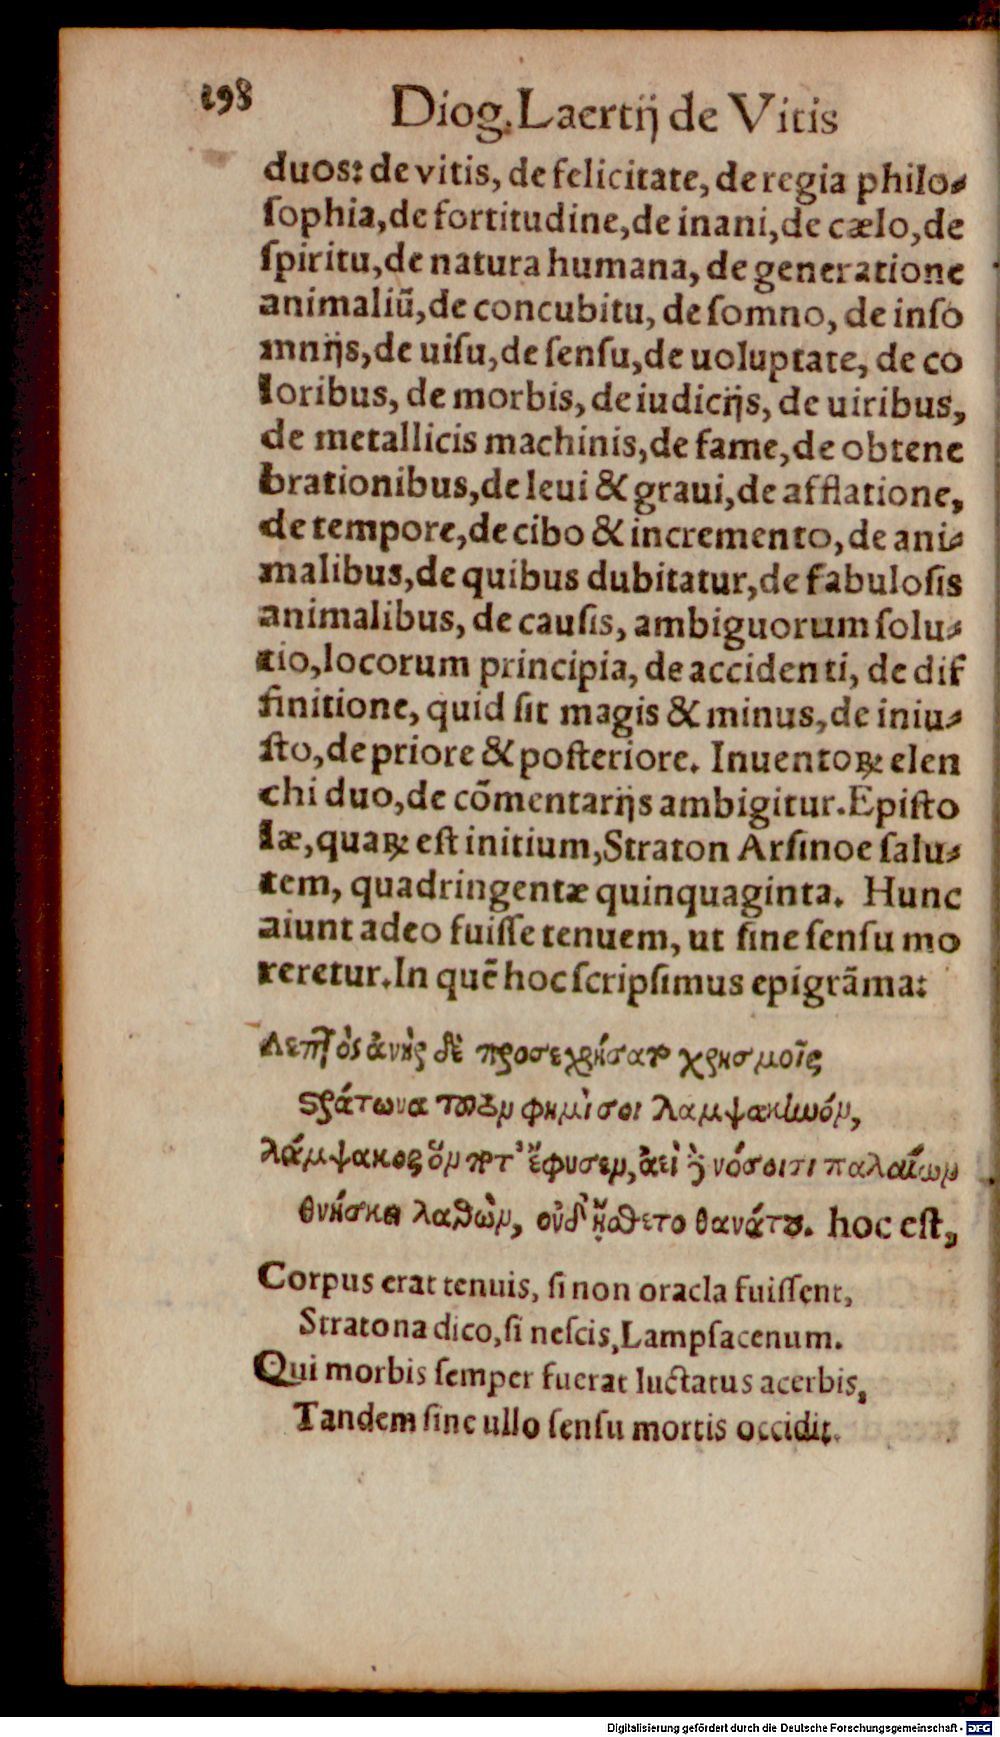 198
Diog. Laertij de Vitis
duos: de vitis, de felicitate, de regia philo-
sophia, de fortitudine, de inani, de cælo, de
spiritu, de natura humana, de generatione
animaliũ, de concubitu, de somno, de inso
mnijs, de uisu, de sensu, de uoluptate, de co
loribus, de morbis, de iudicijs, de uiribus,
de metallicis machinis, de fame, de obtene
brationibus, de leui & graui, de afflatione,
de tempore, de cibo & incremento, de ani-
malibus, de quibus dubitatur, de fabulosis
animalibus, de causis, ambiguorum solu-
tio, locorum principia, de accidenti, de dif
finitione, quid sit magis & minus, de iniu-
sto, de priore & posteriore. Inuentoꝝ elen
chi duo, de cõmentarijs ambigitur. Episto
læ, quaꝝ est initium, Straton Arsinoe salu-
tem, quadringentæ quinquaginta. Hunc
aiunt adeo fuisse tenuem, ut sine sensu mo
reretur. In quẽ hoc scripsimus epigrãma:
Λεπτὸς ἀνὴρ δὲ
ϛράτωνα φημὶ σοι λαμψακιωόν,
λάμψακος ἔφυσεν, ἀεὶ νόσοισι παλαίων
θνήσκει λαθὼν, οὐδ' ᾔσθετο θανάτου. hoc est,
Corpus erat tenuis, si non oracla fuissent,
Stratona dico, si nescis, Lampsacenum.
Qui morbis semper fuerat luctatus acerbis,
Tandem sine ullo sensu mortis occidit.
Digitalisierung gefördert durch die Deutsche Forschungsgemeinschaft - DFG